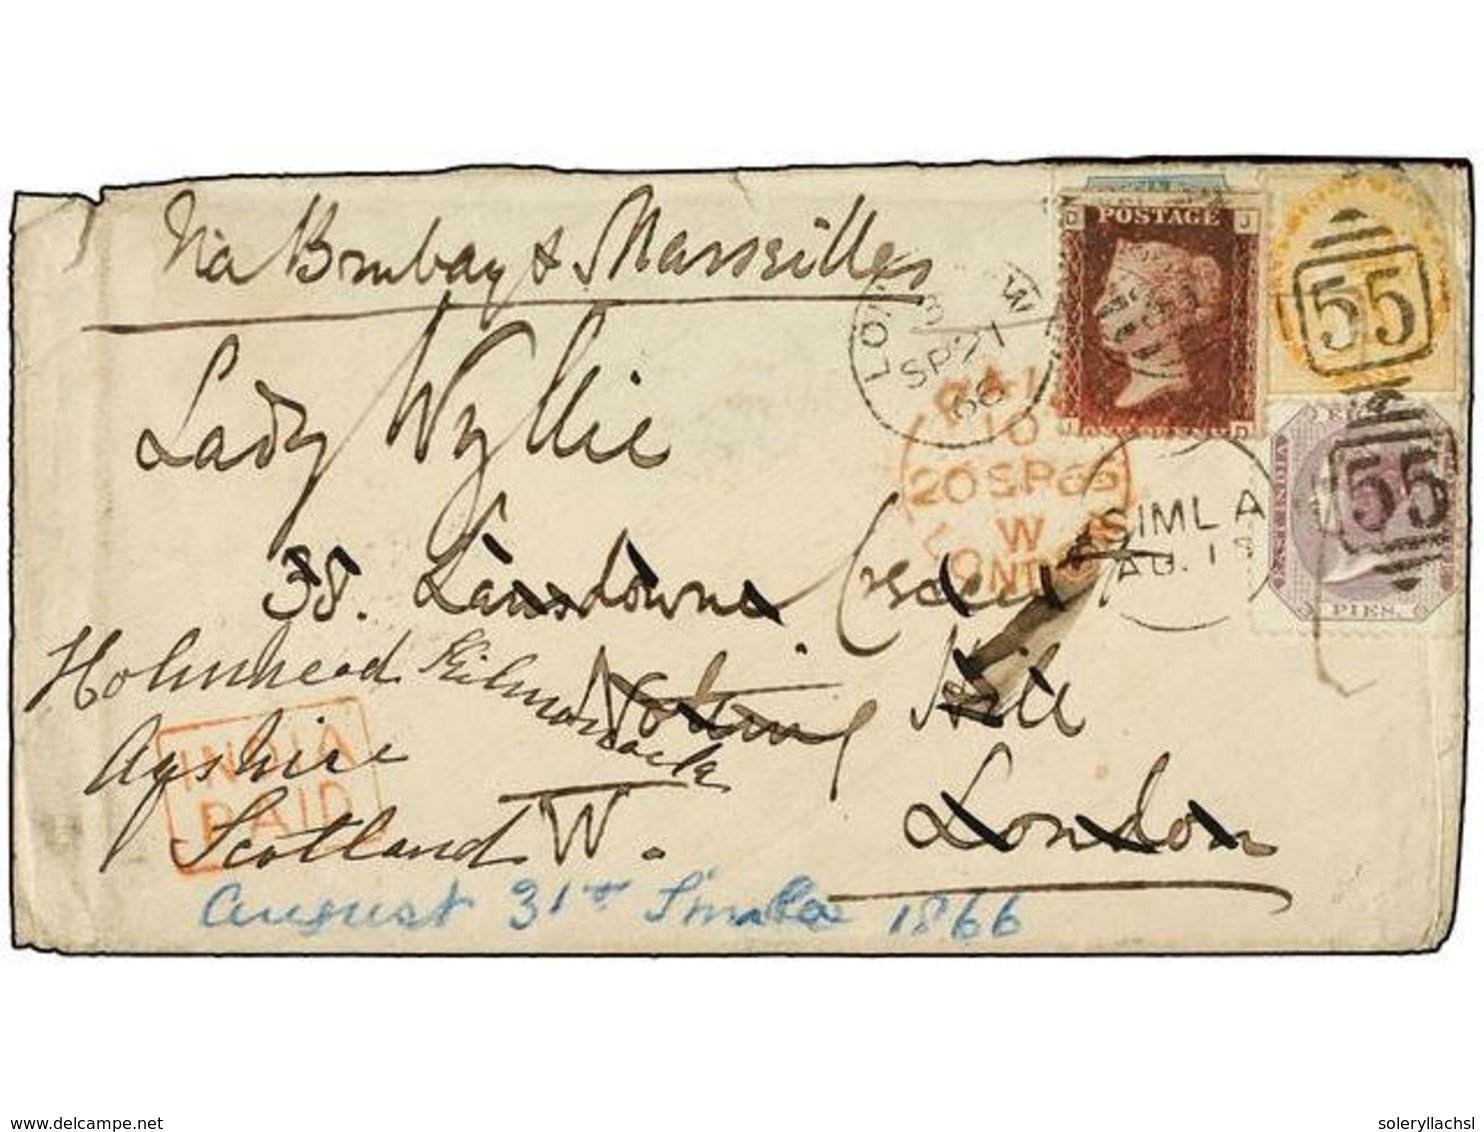 Via Bombay & Marseilles
Lady Wyllie
38. Lansdowne Crescent
Notting Hill
London
W.
Holmhead Kilmarnock
Ayshire
Scotland
INDIA
PAID
August 31st Simla 1866
LON W
SP 21
66
PAID
10
20 SP 66
W
LONDON
SIMLA
AU. 1
D POSTAGE J
J D
55
55
EAST INDIA
PIES.
www.delcampe.net
soleryllachsl